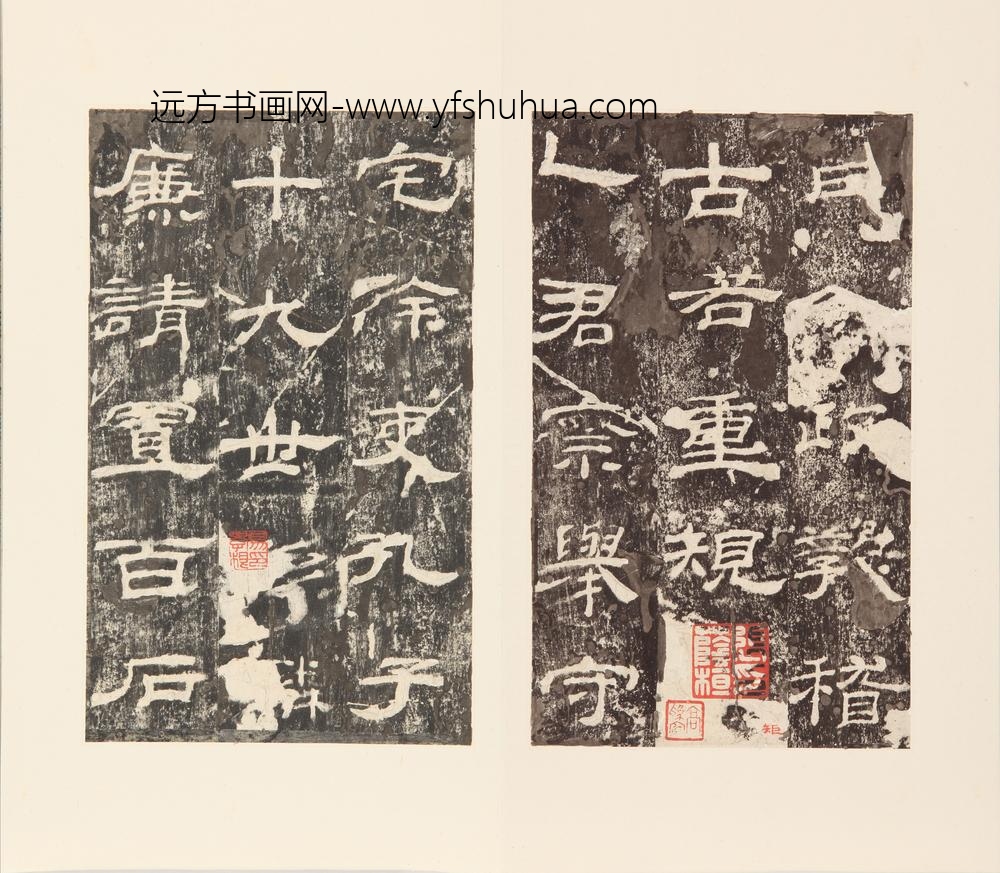 远方书画网-www.yfshuhua.com
政教稽
古若重規矩
乙君察舉守
宅除吏孔子
十九世孫麟
廉請置百石